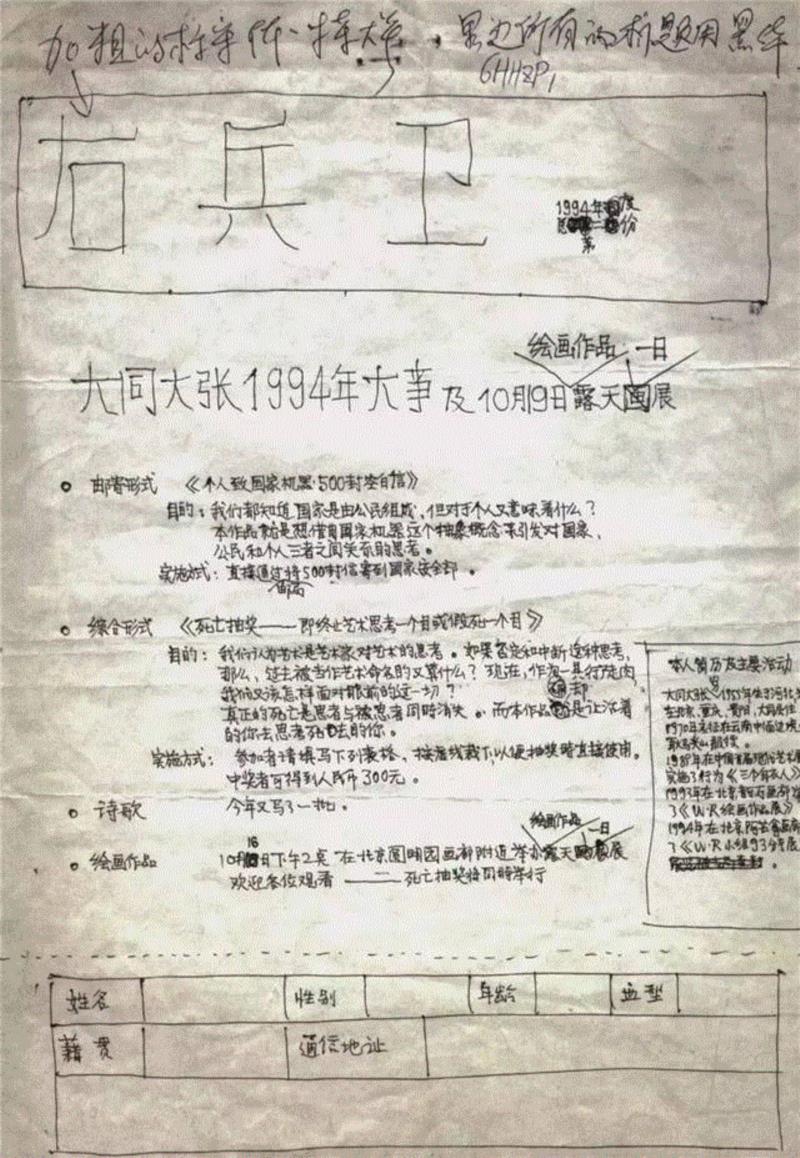 加粗的 特大
里边所有的标题用黑体
右兵卫
1994年 度
第二 份
绘画作品 一日
大同大张1994年大事及10月19日露天画展
邮寄形式 《个人致国家机器·500封空白信》
目的：我们都知道国家是由公民组成，但对于个人又意味着什么？
本作品就是想借用国家机器这个抽象概念来引发对国家、
公民和个人三者之间关系的思考。
实施方式：直接通过将500封信寄到国家安全部。
邮局
综合形式 《死亡抽奖——即终止艺术思考一个月或假死一个月》
目的：我们认为艺术是艺术家对艺术的思考。如果否定和中断这种思考，
那么，过去被当作艺术命名的又算什么？现在，作为一具行尸走肉，
我们又该怎样面对眼前的这一切？
真正的死亡是思考与被思考同时消失。而本作品却是让活着
的你去思考死去的你。
实施方式：参加者请填写下列表格，按虚线裁下，以便抽奖时直接使用。
中奖者可得到人民币300元。
诗歌 今年又写了一批。
绘画作品 一日
绘画作品 10月16日下午2点在北京圆明园画部附近举办露天画展
欢迎各位观看——死亡抽奖将同时举行
本人简历及主要活动
大同大张 1955年生于河北
在北京、重庆、贵阳、大同居住
1970年
1989年在中国首届现代艺术展
实施了行为《三个白衣人》
1993年在北京
了《W·R绘画作品展》
1994年在北京
了《W·R小组93分季展
姓名 性别 年龄 血型
籍贯 通信地址